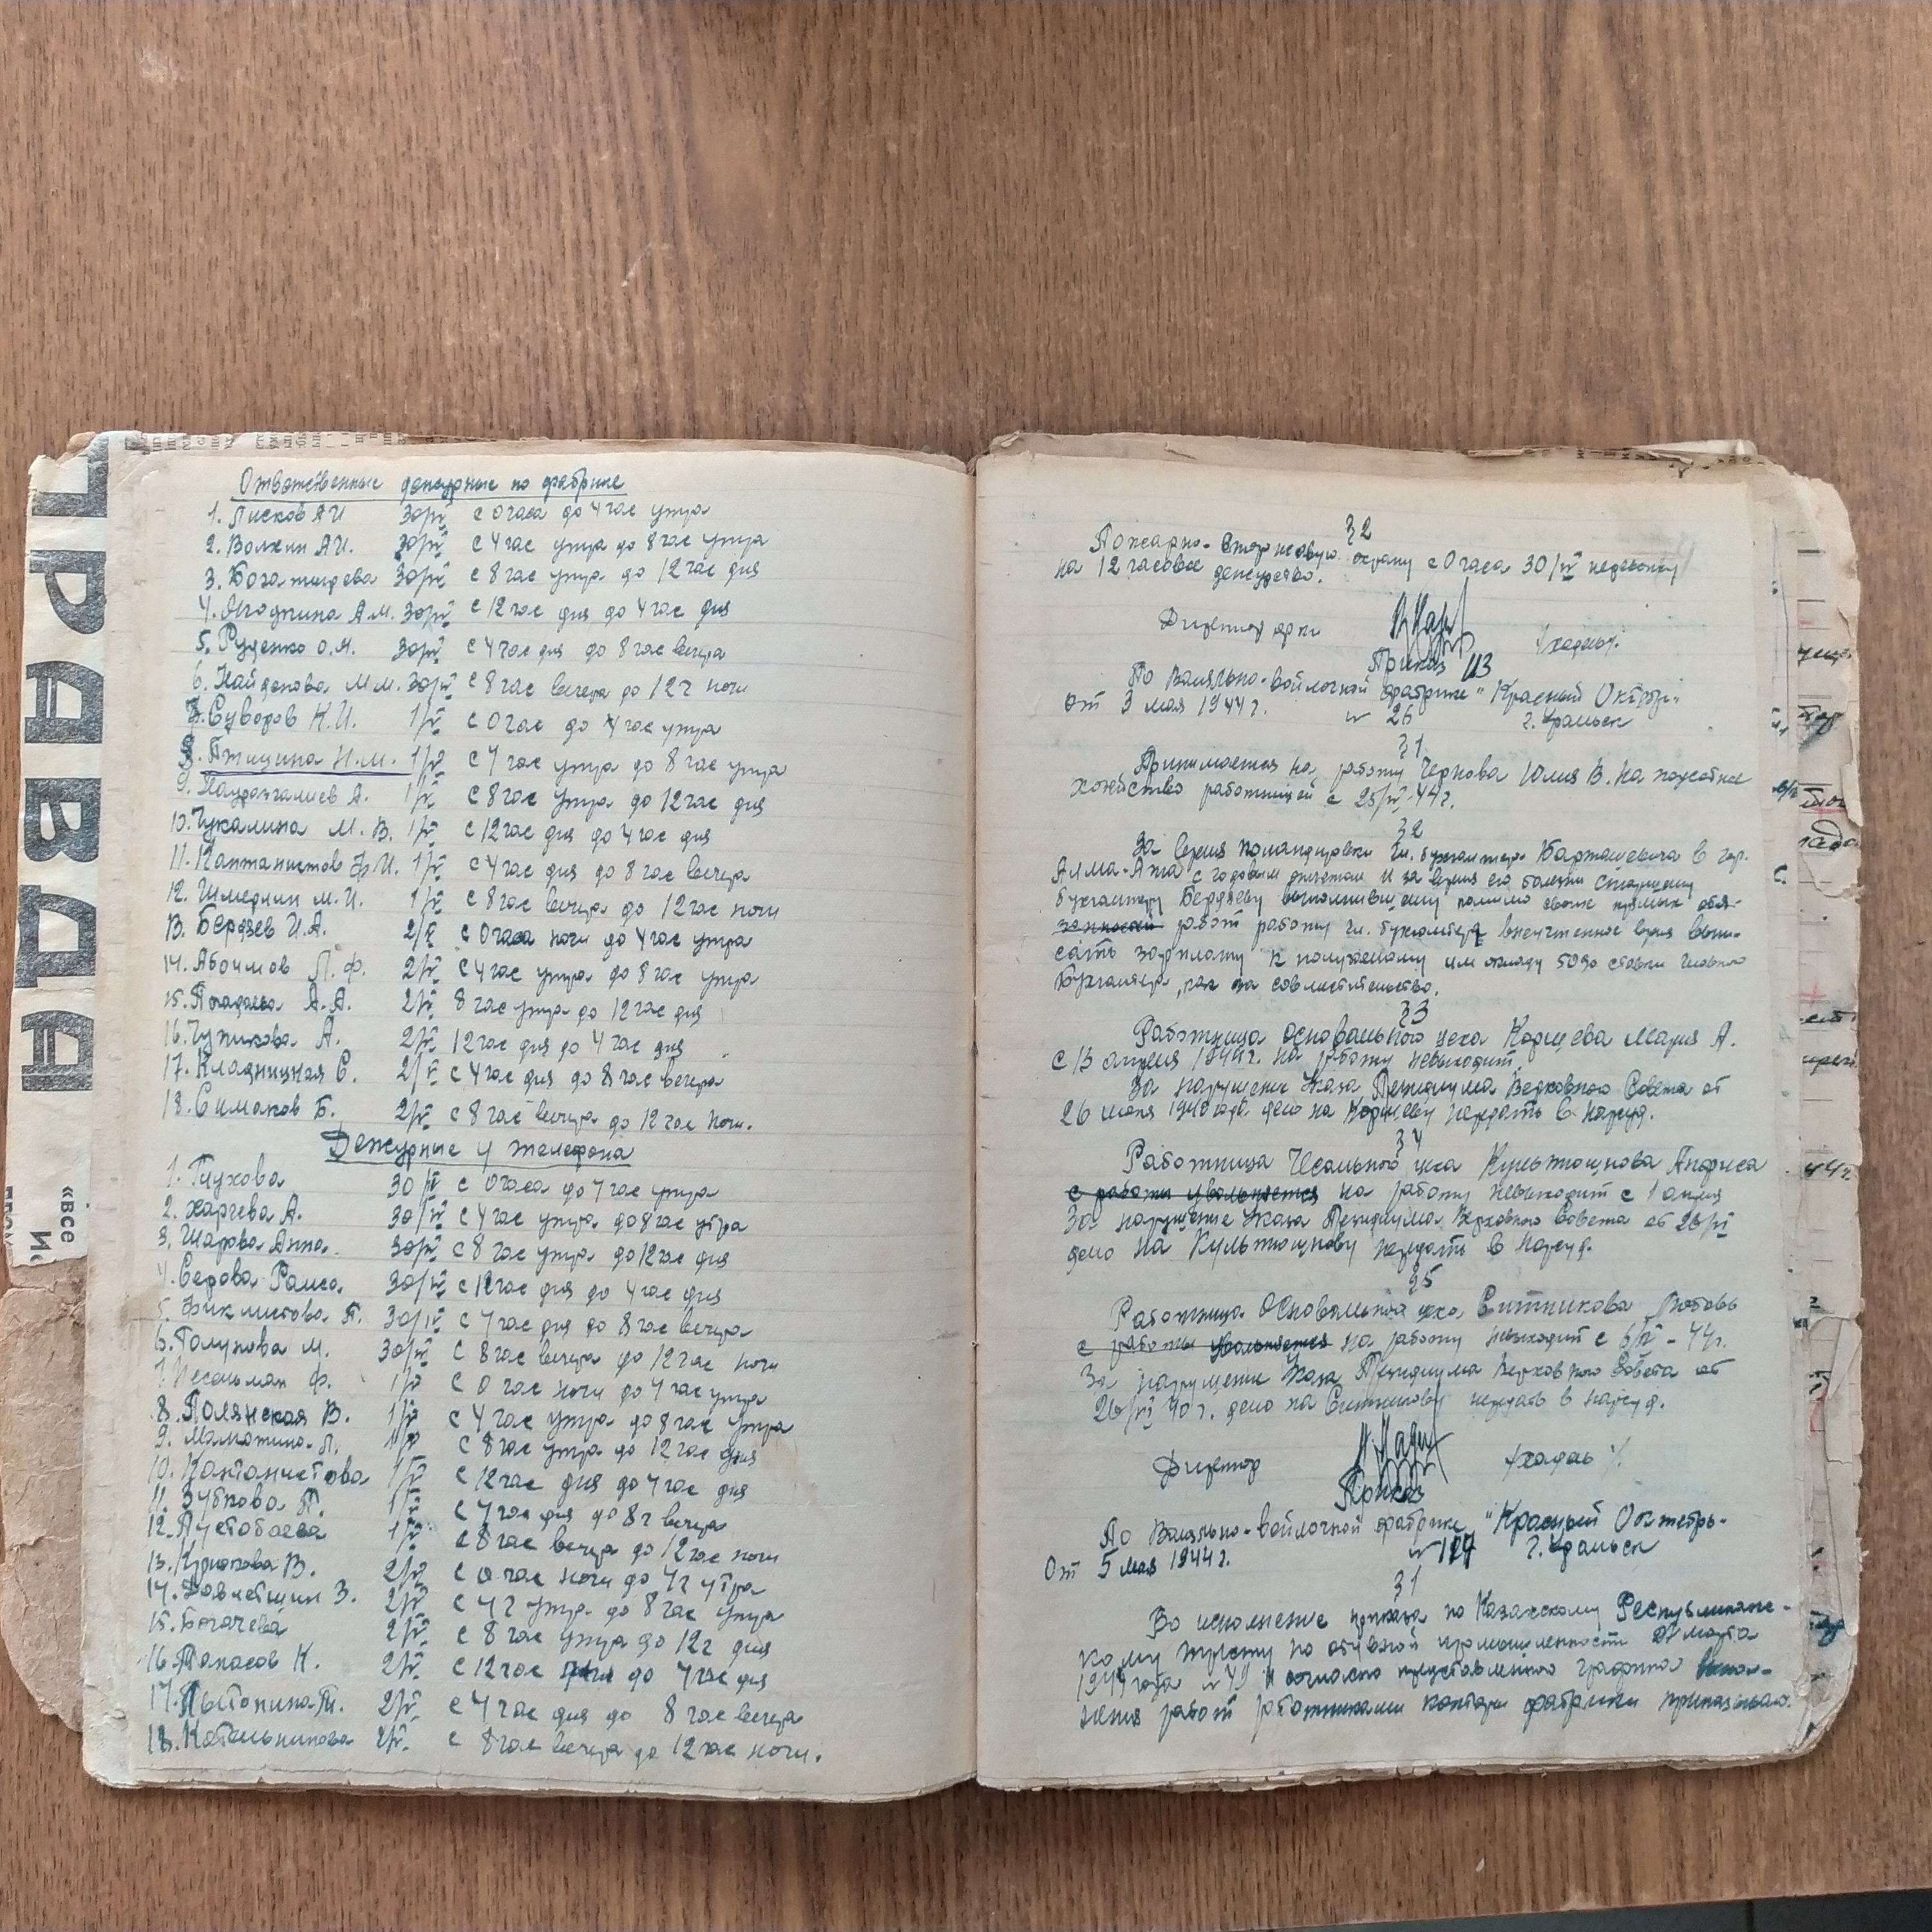 ПРАВДА
«все
Ответственные дежурные по фабрике
1. Писков А И 30/IV с 0 часа до 4 час утра
2. Волхин А.И. 30/IV с 4 час утра до 8 час утра
3. 30/IV с 8 час утра до 12 час дня
4. А.М. 30/IV с 12 час дня до 4 час дня
5. Руденко О.М. 30/IV с 4 час дня до 8 час вечера
6. Найденова М.М. 30/IV с 8 час вечера до 12 ч ночи
7. Суворов К.И. 1/V с 0 час до 4 час утра
8. Птицина Н.М. 1/V с 4 час утра до 8 час утра
9. А. 1/V с 8 час утра до 12 час дня
10. Чукалина М. В. 1/V с 12 час дня до 4 час дня
11. Каптанистов Ф.И. 1/V с 4 час дня до 8 час вечера
12. Шмерлин М.И. 1/V с 8 час вечера до 12 час ночи
13. Бердяев И.А. 2/V с 0 часа ночи до 4 час утра
14. Абоимов П. Ф. 2/V с 4 час утра до 8 час утра
15. А. А. 2/V 8 час утра до 12 час дня
16. Чупикова А. 2/V 12 час дня до 4 час дня
17. Кладницкая С. 2/V с 4 час дня до 8 час вечера
18. Симаков Б. 2/V с 8 час вечера до 12 час ночи.
Дежурные у телефона
1. Глухова 30/IV с 0 часа до 4 час утра
2. Харчева А. 30/IV с 4 час утра до 8 час утра
3. Шарова Анна. 30/IV с 8 час утра до 12 час дня
4. Серова Раиса. 30/IV с 12 час дня до 4 час дня
5. Фиклистова П. 30/IV с 4 час дня до 8 час вечера
6. Голунова М. 30/IV с 8 час вечера до 12 час ночи
7. Ф. 1/V с 0 час ночи до 4 час утра
8. Полянская В. 1/V с 4 час утра до 8 час утра
9. Мамотина П. 1/V с 8 час утра до 12 час дня
10. Каптанистова 1/V с 12 час дня до 4 час дня
11. Зубкова П. 1/V с 4 час дня до 8 ч вечера
12. Пустобаева 1/V с 8 час вечера до 12 час ночи
13. Крюкова В. 2/V с 0 час ночи до 4 ч утра
14. Давлетшин З. 2/V с 4 ч утра до 8 час утра
15. Богачева 2/V с 8 час утра до 12 ч дня
16. К. 2/V с 12 час дня до 4 час дня
17. 2/V с 4 час дня до 8 час вечера
18. Котельникова 2/V. с 8 час вечера до 12 час ночи.
§2
Пожарно-сторожевую охрану с 0 часа 30/IV перевожу
на 12 часовое дежурство.
Директор ф-ки
Приказ
По Валяльно-войлочной фабрике "Красный Октябр"
от 3 мая 1944 г. № 26 г. Уральск
§1
Принимается на работу Чернова Юлия В. на подсобное
хозяйство работницей с 25/IV-44 г.
§2
За время командировки гл. бухгалтера Барташевича в гор.
Алма-Ата с годовым отчетом и за время его болезни Старшему
бухгалтеру Бердяеву выполнявшему помимо своих прямых обя-
занностей работ работу гл. бухгалтера вышеуказанное время выпи-
сать зарплату к получаемому им окладу 50% ставки главного
бухгалтера, как за совместительство.
§3
Работница основального цеха Коршева Мария А.
с 13 апреля 1944 г. на работу невыходит.
За нарушение Указа Президиума Верховного Совета от
26 июня 1940 года дело на Коршеву передать в нарсуд.
§4
Работница Чесального цеха Культюшнова Анфиса
с работы увольняется на работу невыходит с
За нарушение Указа Президиума Верховного Совета от 26/VI
дело на Культюшнову передать в нарсуд.
§5
Работница Основального цеха Ситникова Любовь
с работы увольняется на работу невыходит с 6/IV - 44 г.
За нарушение Указа Президиума Верховного Совета от
26/VI 40 г. дело на Ситникову передать в нарсуд.
Директор
Приказ
По Валяльно-войлочной фабрике "Красный Октябрь"
От 5 мая 1944 г. г. Уральск
§1
Во исполнение приказа по Казахскому Республиканс-
кому тресту по обувной промышленности 27 марта
1944 года и согласно представленного графика выпол-
нения работ работниками конторы фабрики приказываю.
44 г.